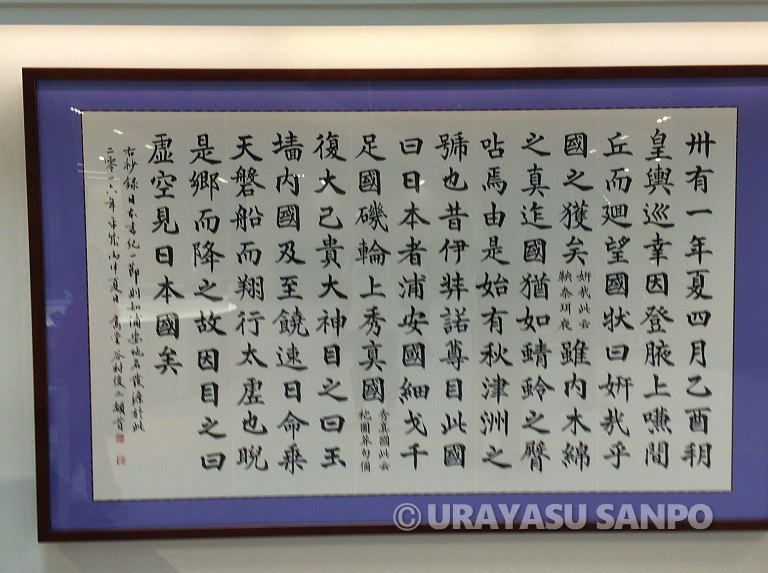 卅有一年夏四月乙酉朔
皇輿巡幸因登腋上嗛間
丘而廻望國状曰妍哉乎
國之獲矣妍哉此云鞅奈珥夜雖内木綿
之真迮國猶如蜻蛉之臀
呫焉由是始有秋津洲之
號也昔伊弉諾尊目此國
曰日本者浦安國細戈千
足國磯輪上秀真國秀真國此云袍圖莽句儞
復大己貴大神目之曰玉
墻内國及至饒速日命乗
天磐船而翔行太虚也睨
是郷而降之故因目之曰
虚空見日本國矣
右抄録日本書紀一節則知浦安地名發源於此
二零一六年丙申夏日谷村俊二頓首
©URAYASU SANPO